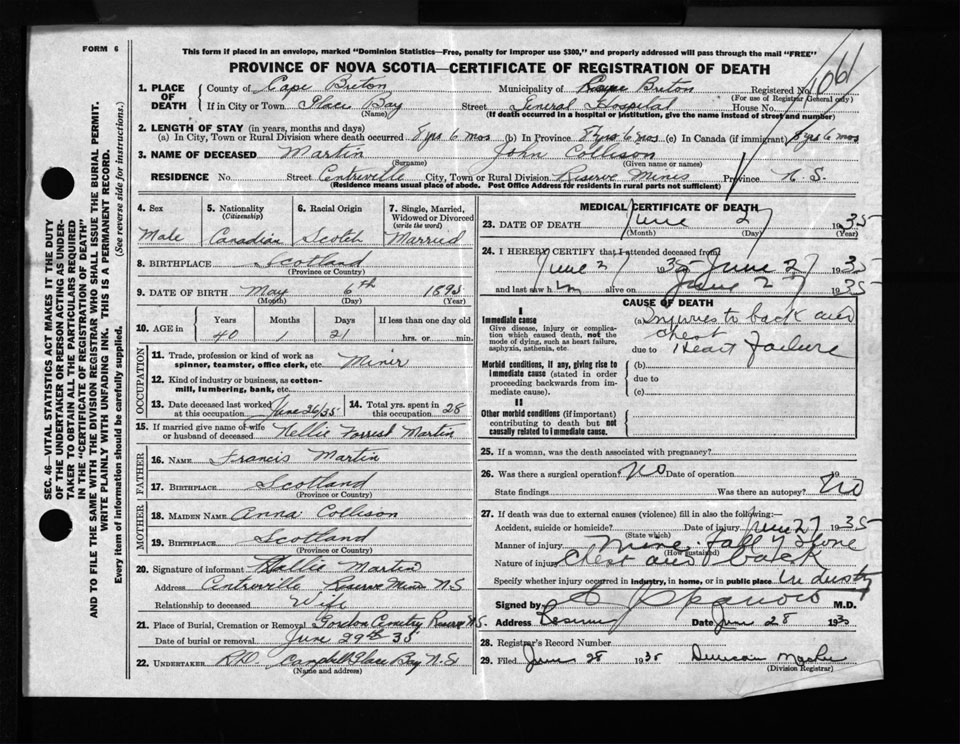 FORM 6
This form if placed in an envelope, marked "Dominion Statistics—Free, penalty for improper use $300," and properly addressed will pass through the mail "FREE"
PROVINCE OF NOVA SCOTIA—CERTIFICATE OF REGISTRATION OF DEATH
1. PLACE OF DEATH County of Cape Breton Municipality of Cape Breton Registered No. 1061
(For use of Registrar General only)
If in City or Town Glace Bay Street General Hospital House No.
(Name) (If death occurred in a hospital or institution, give the name instead of street and number)
2. LENGTH OF STAY (in years, months and days)
(a) In City, Town or Rural Division where death occurred 8 yrs 6 mos (b) In Province 8 yrs 6 mos (c) In Canada (if immigrant) 8 yrs 6 mos
3. NAME OF DECEASED Martin John Collison
(Surname) (Given name or names)
RESIDENCE No. Street Centreville City, Town or Rural Division Reserve Mines Province N.S.
(Residence means usual place of abode. Post Office Address for residents in rural parts not sufficient)
4. Sex Male
5. Nationality (Citizenship) Canadian
6. Racial Origin Scotch
7. Single, Married, Widowed or Divorced (write the word) Married
8. BIRTHPLACE Scotland
(Province or Country)
9. DATE OF BIRTH May 6th 1895
(Month) (Day) (Year)
10. AGE in Years Months Days If less than one day old
40 1 21 hrs. or min.
OCCUPATION
11. Trade, profession or kind of work as spinner, teamster, office clerk, etc. Miner
12. Kind of industry or business, as cotton-mill, lumbering, bank, etc.
13. Date deceased last worked at this occupation June 26/35
14. Total yrs. spent in this occupation 28
15. If married give name of wife or husband of deceased Nellie Forrest Martin
FATHER
16. NAME Francis Martin
17. BIRTHPLACE Scotland
(Province or Country)
MOTHER
18. MAIDEN NAME Anna Collison
19. BIRTHPLACE Scotland
(Province or Country)
20. Signature of informant Martin
Address Centreville Reserve Mines N.S
Relationship to deceased Wife
21. Place of Burial, Cremation or Removal Gordon Cemetry Reserve N.S.
Date of burial or removal June 29th 35
22. UNDERTAKER Campbell Glace Bay N.S
(Name and address)
MEDICAL CERTIFICATE OF DEATH
23. DATE OF DEATH June 27 1935
(Month) (Day) (Year)
24. I HEREBY CERTIFY that I attended deceased from
June 27 1935 June 27 1935
and last saw him alive on June 27 1935
CAUSE OF DEATH
I
Immediate cause (a) Injuries to back and
Give disease, injury or complication which caused death, not the mode of dying, such as heart failure, asphyxia, asthenia, etc.
chest
due to Heart Failure
Morbid conditions, if any, giving rise to immediate cause (stated in order proceeding backwards from immediate cause).
(b)
due to
(c)
II
Other morbid conditions (if important) contributing to death but not causally related to immediate cause.
25. If a woman, was the death associated with pregnancy?
26. Was there a surgical operation? NO Date of operation 19
State findings Was there an autopsy? NO
27. If death was due to external causes (violence) fill in also the following:
Accident, suicide or homicide? Date of injury June 27 1935
(State which)
Manner of injury Mine fall of stone
(How sustained)
Nature of injury Chest and back
Specify whether injury occurred in industry, in home, or in public place industry
Signed by M.D.
Address Reserve Date June 28 1935
28. Registrar's Record Number
29. Filed June 28 1935 Duncan
(Division Registrar)
SEC. 46—VITAL STATISTICS ACT MAKES IT THE DUTY
OF THE UNDERTAKER OR PERSON ACTING AS UNDER-
TAKER TO OBTAIN ALL THE PARTICULARS REQUIRED
IN THE "CERTIFICATE OF REGISTRATION OF DEATH"
AND TO FILE THE SAME WITH THE DIVISION REGISTRAR WHO SHALL ISSUE THE BURIAL PERMIT.
WRITE PLAINLY WITH UNFADING INK. THIS IS A PERMANENT RECORD.
Every item of information should be carefully supplied. (See reverse side for instructions.)